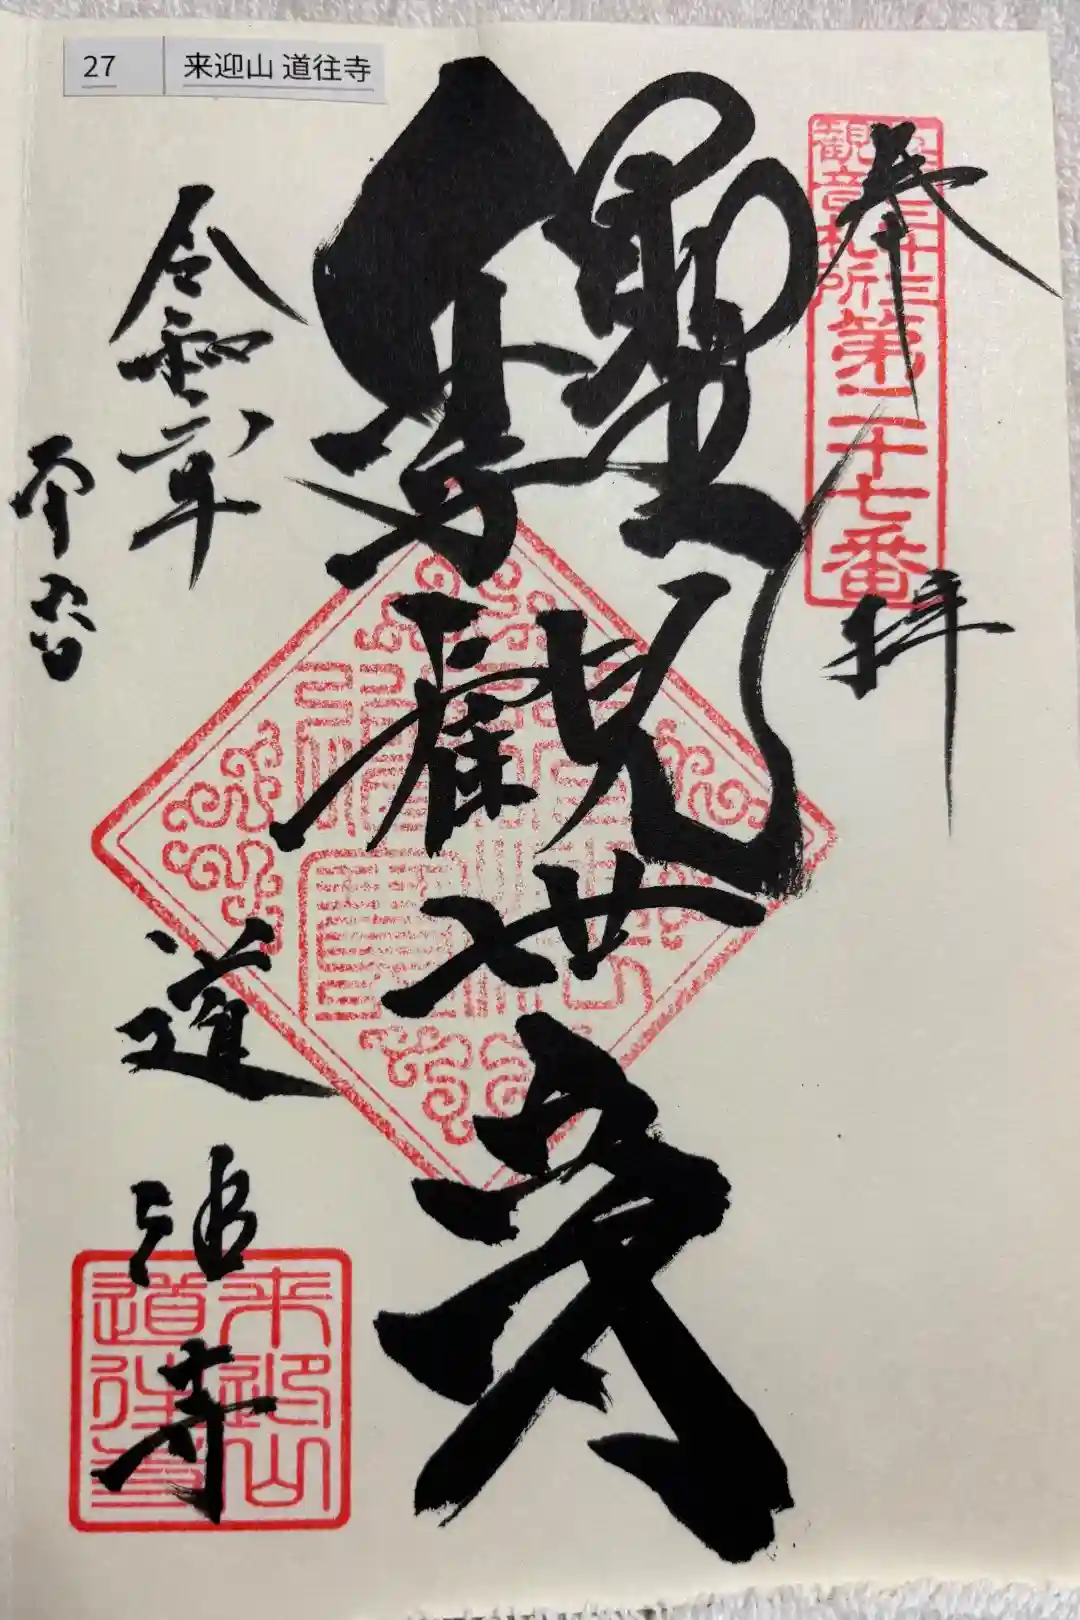 27 来迎山 道往寺
奉拝
江戸三十三
観音札所
第二十七番
聖
千手
観世音
令和六年
道往寺
来迎山
道往寺